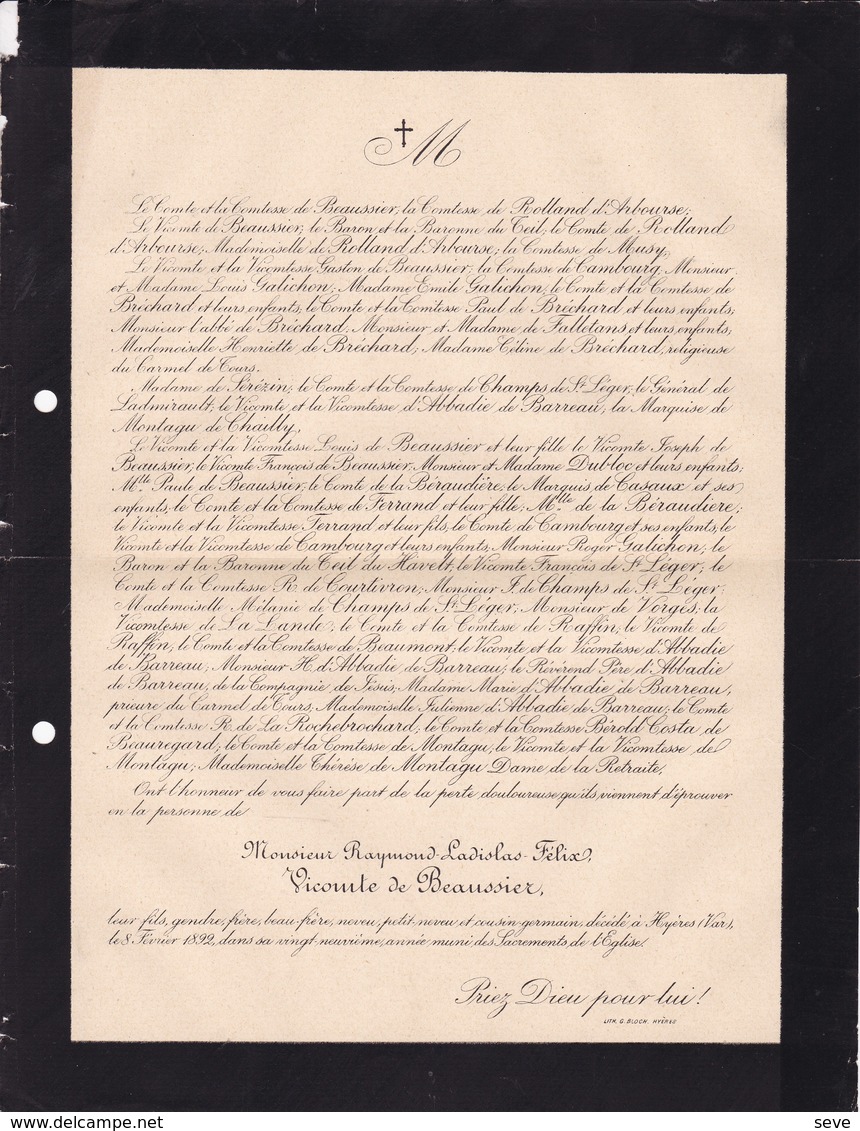 M
Le Comte et la Comtesse de Beaussier; la Comtesse de Rolland d'Arbourse;
Le Vicomte de Beaussier; le Baron et la Baronne du Teil; le Comte de Rolland
d'Arbourse; Mademoiselle de Rolland d'Arbourse; la Comtesse de Musy,
Le Vicomte et la Vicomtesse Gaston de Beaussier; la Comtesse de Cambourg, Monsieur
et Madame Louis Galichon; Madame Emile Galichon; le Comte et la Comtesse de
Bréchard et leurs enfants; le Comte et la Comtesse Paul de Bréchard et leurs enfants;
Monsieur l'abbé de Bréchard; Monsieur et Madame de Falletans et leurs enfants;
Mademoiselle Henriette de Bréchard; Madame Céline de Bréchard, religieuse
du Carmel de Tours.
Madame de Serézin; le Comte et la Comtesse de Champs de St Léger; le Général de
Ladmirault; le Vicomte et la Vicomtesse d'Abbadie de Barreau; la Marquise de
Montagu de Chailly,
Le Vicomte et la Vicomtesse Louis de Beaussier et leur fille le Vicomte Joseph de
Beaussier; le Vicomte François de Beaussier; Monsieur et Madame Dubloc et leurs enfants;
Mlle Paule de Beaussier; le Comte de la Béraudière; le Marquis de Casaux et ses
enfants; le Comte et la Comtesse de Ferrand et leur fille; Mlle de la Béraudière;
le Vicomte et la Vicomtesse Ferrand et leur fils; le Comte de Cambourg et ses enfants; le
Vicomte et la Vicomtesse de Cambourg et leurs enfants; Monsieur Roger Galichon; le
Baron et la Baronne du Teil du Havelt; le Vicomte François de St Léger; le
Comte et la Comtesse R. de Courtivron; Monsieur J. de Champs de St Léger;
Mademoiselle Mélanie de Champs de St Léger; Monsieur de Vorges; la
Vicomtesse de La Lande; le Comte et la Comtesse de Raffin; le Vicomte de
Raffin; le Comte et la Comtesse de Beaumont; le Vicomte et la Vicomtesse d'Abbadie
de Barreau; Monsieur H. d'Abbadie de Barreau; le Révérend Père d'Abbadie
de Barreau, de la Compagnie de Jésus; Madame Marie d'Abbadie de Barreau,
prieure du Carmel de Tours; Mademoiselle Julienne d'Abbadie de Barreau; le Comte
et la Comtesse R. de La Rochebrochard; le Comte et la Comtesse Bérold Costa de
Beauregard; le Comte et la Comtesse de Montagu; le Vicomte et la Vicomtesse de
Montagu; Mademoiselle Thérèse de Montagu Dame de la Retraite,
Ont l'honneur de vous faire part de la perte douloureuse qu'ils viennent d'éprouver
en la personne de
Monsieur Raymond-Ladislas-Félix,
Vicomte de Beaussier,
leur fils, gendre, frère, beau-frère, neveu, petit-neveu et cousin-germain, décédé à Hyères (Var),
le 8 Février 1892, dans sa vingt-neuvième, année muni des Sacrements de l'Eglise.
Priez Dieu pour lui!
LITH. G. BLOCH, HYÈRES
www.delcampe.net
seve